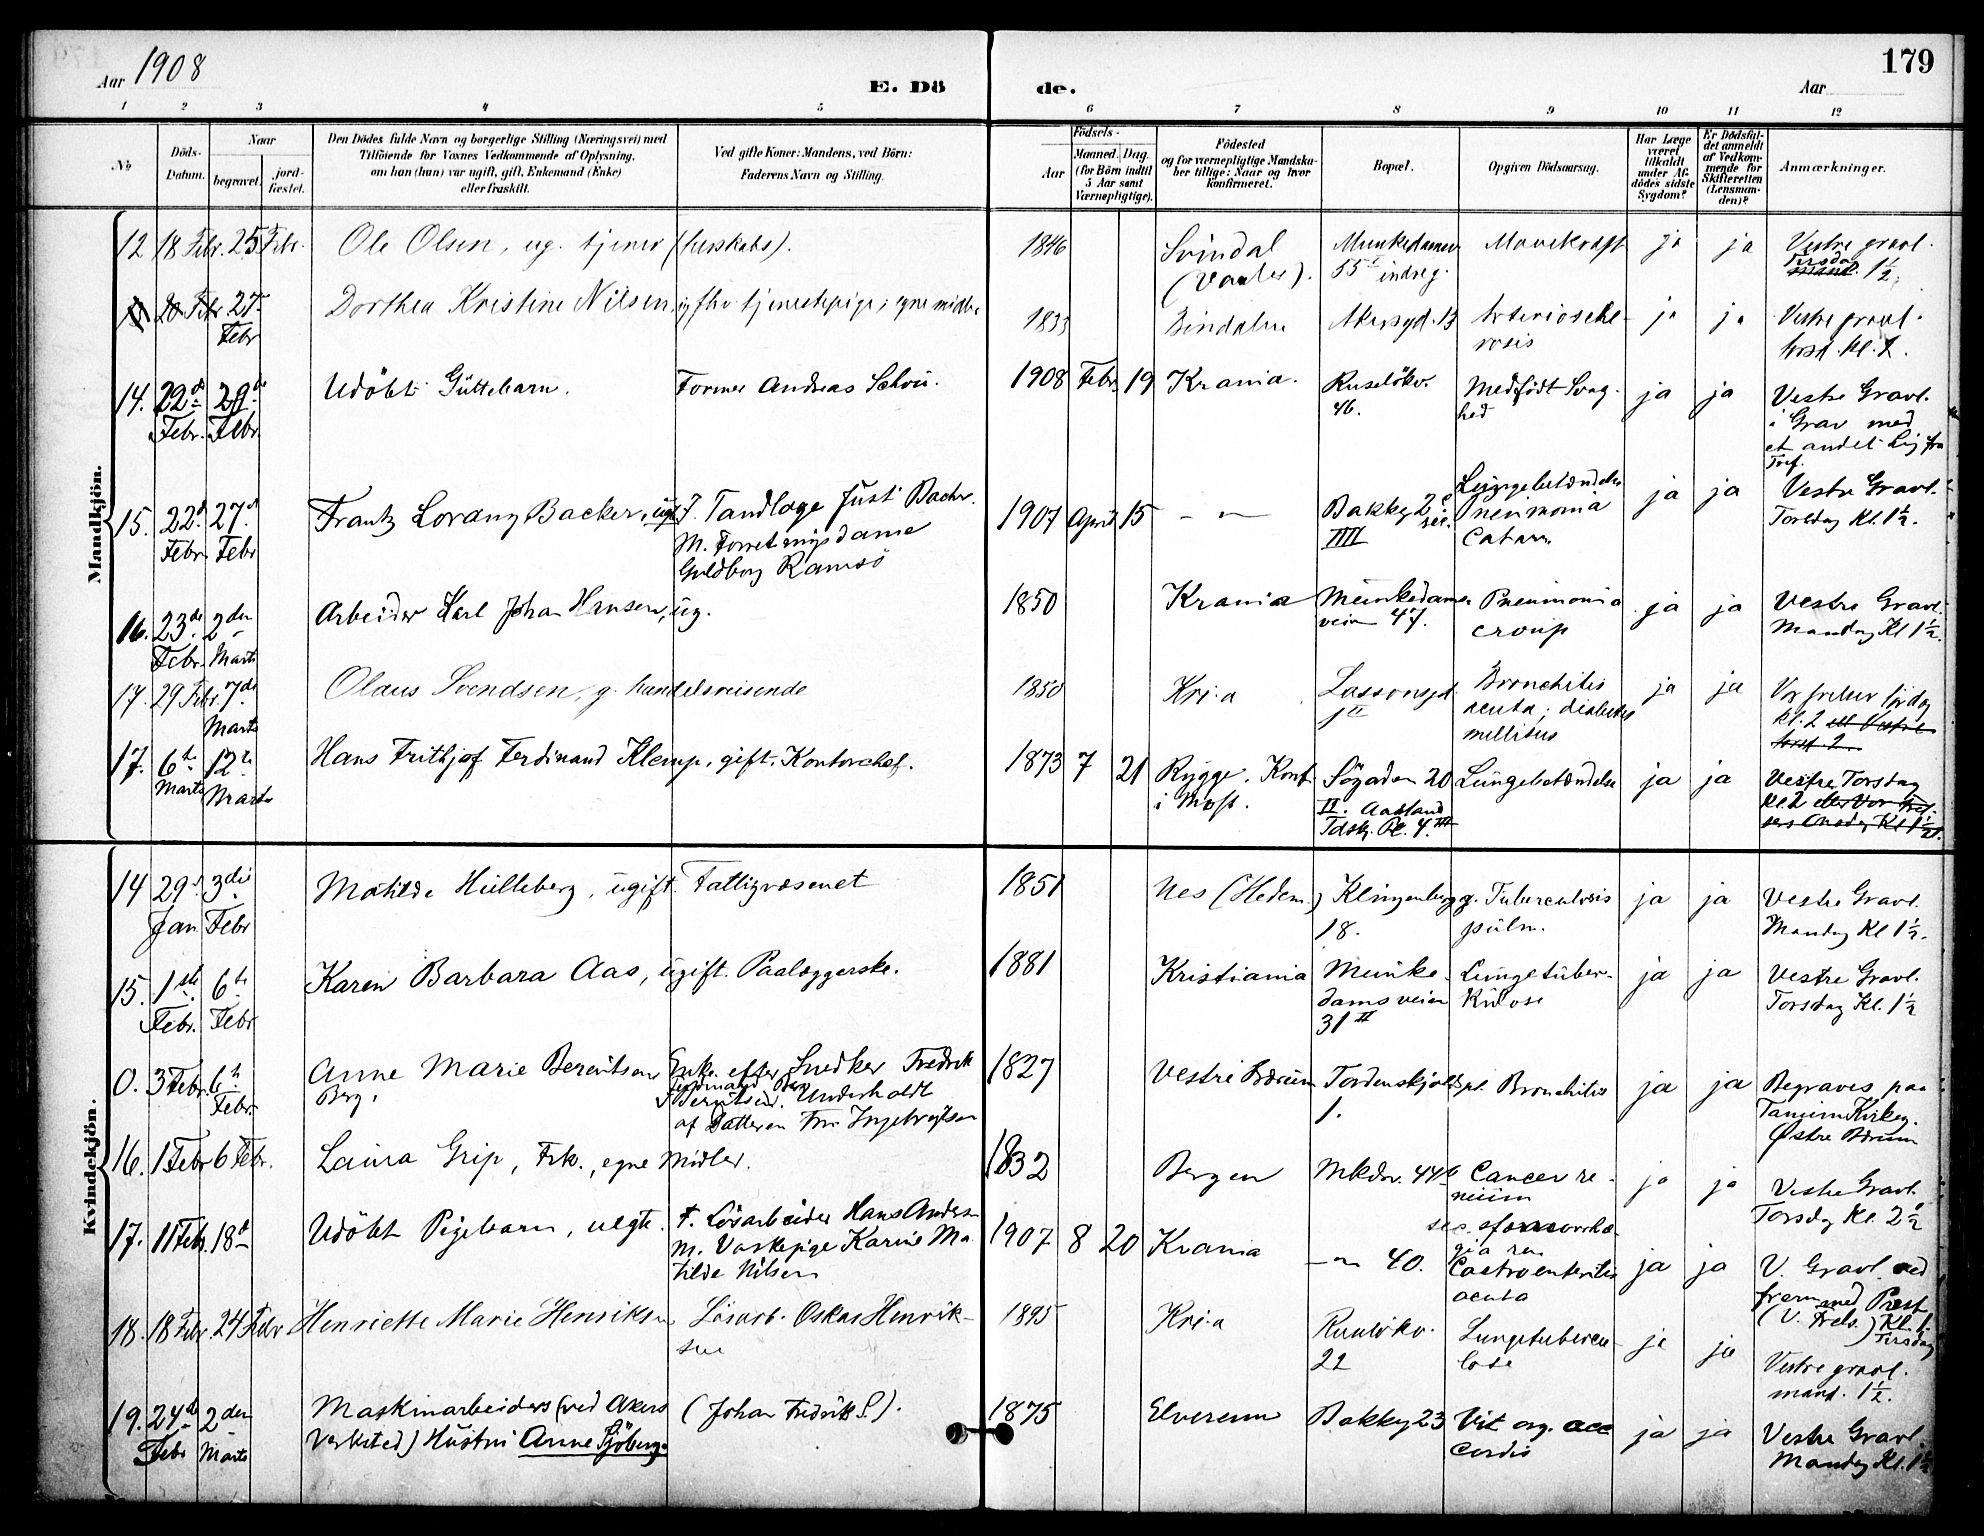 Aar 1908
E. Dö
de.
Aar
179
1 2 3 4 5 6 7 8 9 10 11 12
No
Döds-
Datum.
Naar
begravet.
jord-
fæstet.
Den Dödes fulde Navn og borgerlige Stilling (Næringsvei) med
Tilföiende for Voxnes Vedkommende af Oplysning,
om han (hun) var ugift, gift, Enkemand (Enke)
eller fraskilt.
Ved gifte Koner: Mandens, ved Börn:
Faderens Navn og Stilling.
Födsels-
Aar
Maaned.
Dag.
(for Börn indtil
5 Aar samt
Værnepligtige).
Födested
og for værnepligtige Mandska-
ber tillige: Naar og hvor
konfirmeret.
Bopæl.
Opgiven Dödsaarsag.
Har Læge
været
tilkaldt
under Af-
dödes sidste
Sygdom?
Er Dödsfal-
det anmeldt
af Vedkom-
mende for
Skifteretten
(Lensman-
den)?
Anmærkninger.
Mandkjön.
12 18 Febr. 25 Febr. Ole Olsen, ug. tjener (herskabs). 1846 Svindal Munkedamsv Mavekræft ja ja Vestre gravl.
(Vaaler). 55 indreg. Tirsdag 1½
20 Febr 27 Dorthea Kristine Nilsen, ug fhv. tjenestepige; egne midler 1833 Bindalen Akersgd. 13 Arterioscle- ja ja Vestre gravl.
Febr rosis kl. 2.
14. 22d 29d Udöbt Guttebarn. Former Andreas 1908 Febr. 19 Krania. Ruselökv. Medfödt Svag- ja ja Vestre Gravl.
Febr. Febr. 46. hed i Grav med
et andet Lig fra
Tref.
15. 22d 27d Frantz Backer, ugt F. Tandlæge Just Backer. 1907 April 15 - " - Bakkeg 2 Lungebetændelse ja ja Vestre Gravl.
Febr. Febr M. Forretningsdame IIII Pneumonia Torsdag Kl. 1½.
Guldborg Ramsö Catarr
16. 23de 2den Arbeider Karl Johan Hansen, ug. 1850 Krania Munkedams Pneumonia ja ja Vestre Gravl.
Febr. Marts veien 47. croup Mandag Kl 1½.
17. 29 Febr 7de Olaus Svendsen, g. handelsreisende 1850 Kr.i.a Lassonsgd. Bronchitis ja ja Vor frelser lördag
Marts 1 II acuta; diabetes kl. 2 Vestre
mellitus
17. 6te 12te Hans Frithjof Ferdinand Klemp, gift, Kontorchef. 1873 7 21 Rygge. Konf. Sögaden 20 Lungebetændelse ja ja Vestre Torsdag
Marts Marts i Moss. II. Aasland Kl. 2 eller Vor Frel-
Pl. 4. III sers Onsdag Kl 1½.
Kvindekjön.
14 29d 3die Matilde Hulleberg, ugift. Fattigvæsenet 1851 Nes (Hedem.) Klingenbergg. Tuberculosis ja ja Vestre Gravl.
Jan Febr 18. pulm. Mandag Kl 1½.
15. 1ste 6te Karen Barbara Aas, ugift. Paalæggerske. 1881 Kristiania Munke- Lungetuber- ja ja Vestre Gravl.
Febr. Febr. damsveien kulose Torsdag Kl. 1½
31 II
0. 3 Febr. 6te Anne Marie Berentsen Enke efter Snedker Fredrik 1827 Vestre Bærum Tordenskjoldspl. Bronchitis ja ja Begraves paa
Febr. Berg, Ferdinand Berg 1. Tanum Kirkeg.
Berntsen. Underholdt Østre Bærum
af Datteren Fru Ingebrigtsen
16. 1 Febr 6 Febr. Laura Grip, Frk., egne Midler. 1832 Bergen Mkdv. 44b Cancer re- ja ja Vestre Gravl.
num Torsdg Kl. 2½
17. 11 Febr. 18d Udöbt Pigebarn, uegte. F. Lösarbeider Hans Anders 1907 8 20 Krania - " - 40. Gastroenteritis ja ja V. Gravl. ned
M. Vaskepige Karine Ma- acuta frem med Præst
tilde Nilsen (V. Frels.) Kl. 1.
Tirsdag
18. 18 Febr 24 Febr Henriette Marie Henriksen Lösarb. Oskar Henrik- 1895 Kr.i.a Ruselökv. Lungetubercu- ja ja Vestre gravl.
sen 22 lose mand. 1½.
19. 24d 2den Maskinarbeiders (ved Akers (Johan Fredrik S.). 1875 Elverum Bakkeg 23 Vit. org. acc ja ja Vestre Gravl.
Febr Marts Verksted) Hustru Anne Sjöberg. Cordis Mandag Kl. 1½